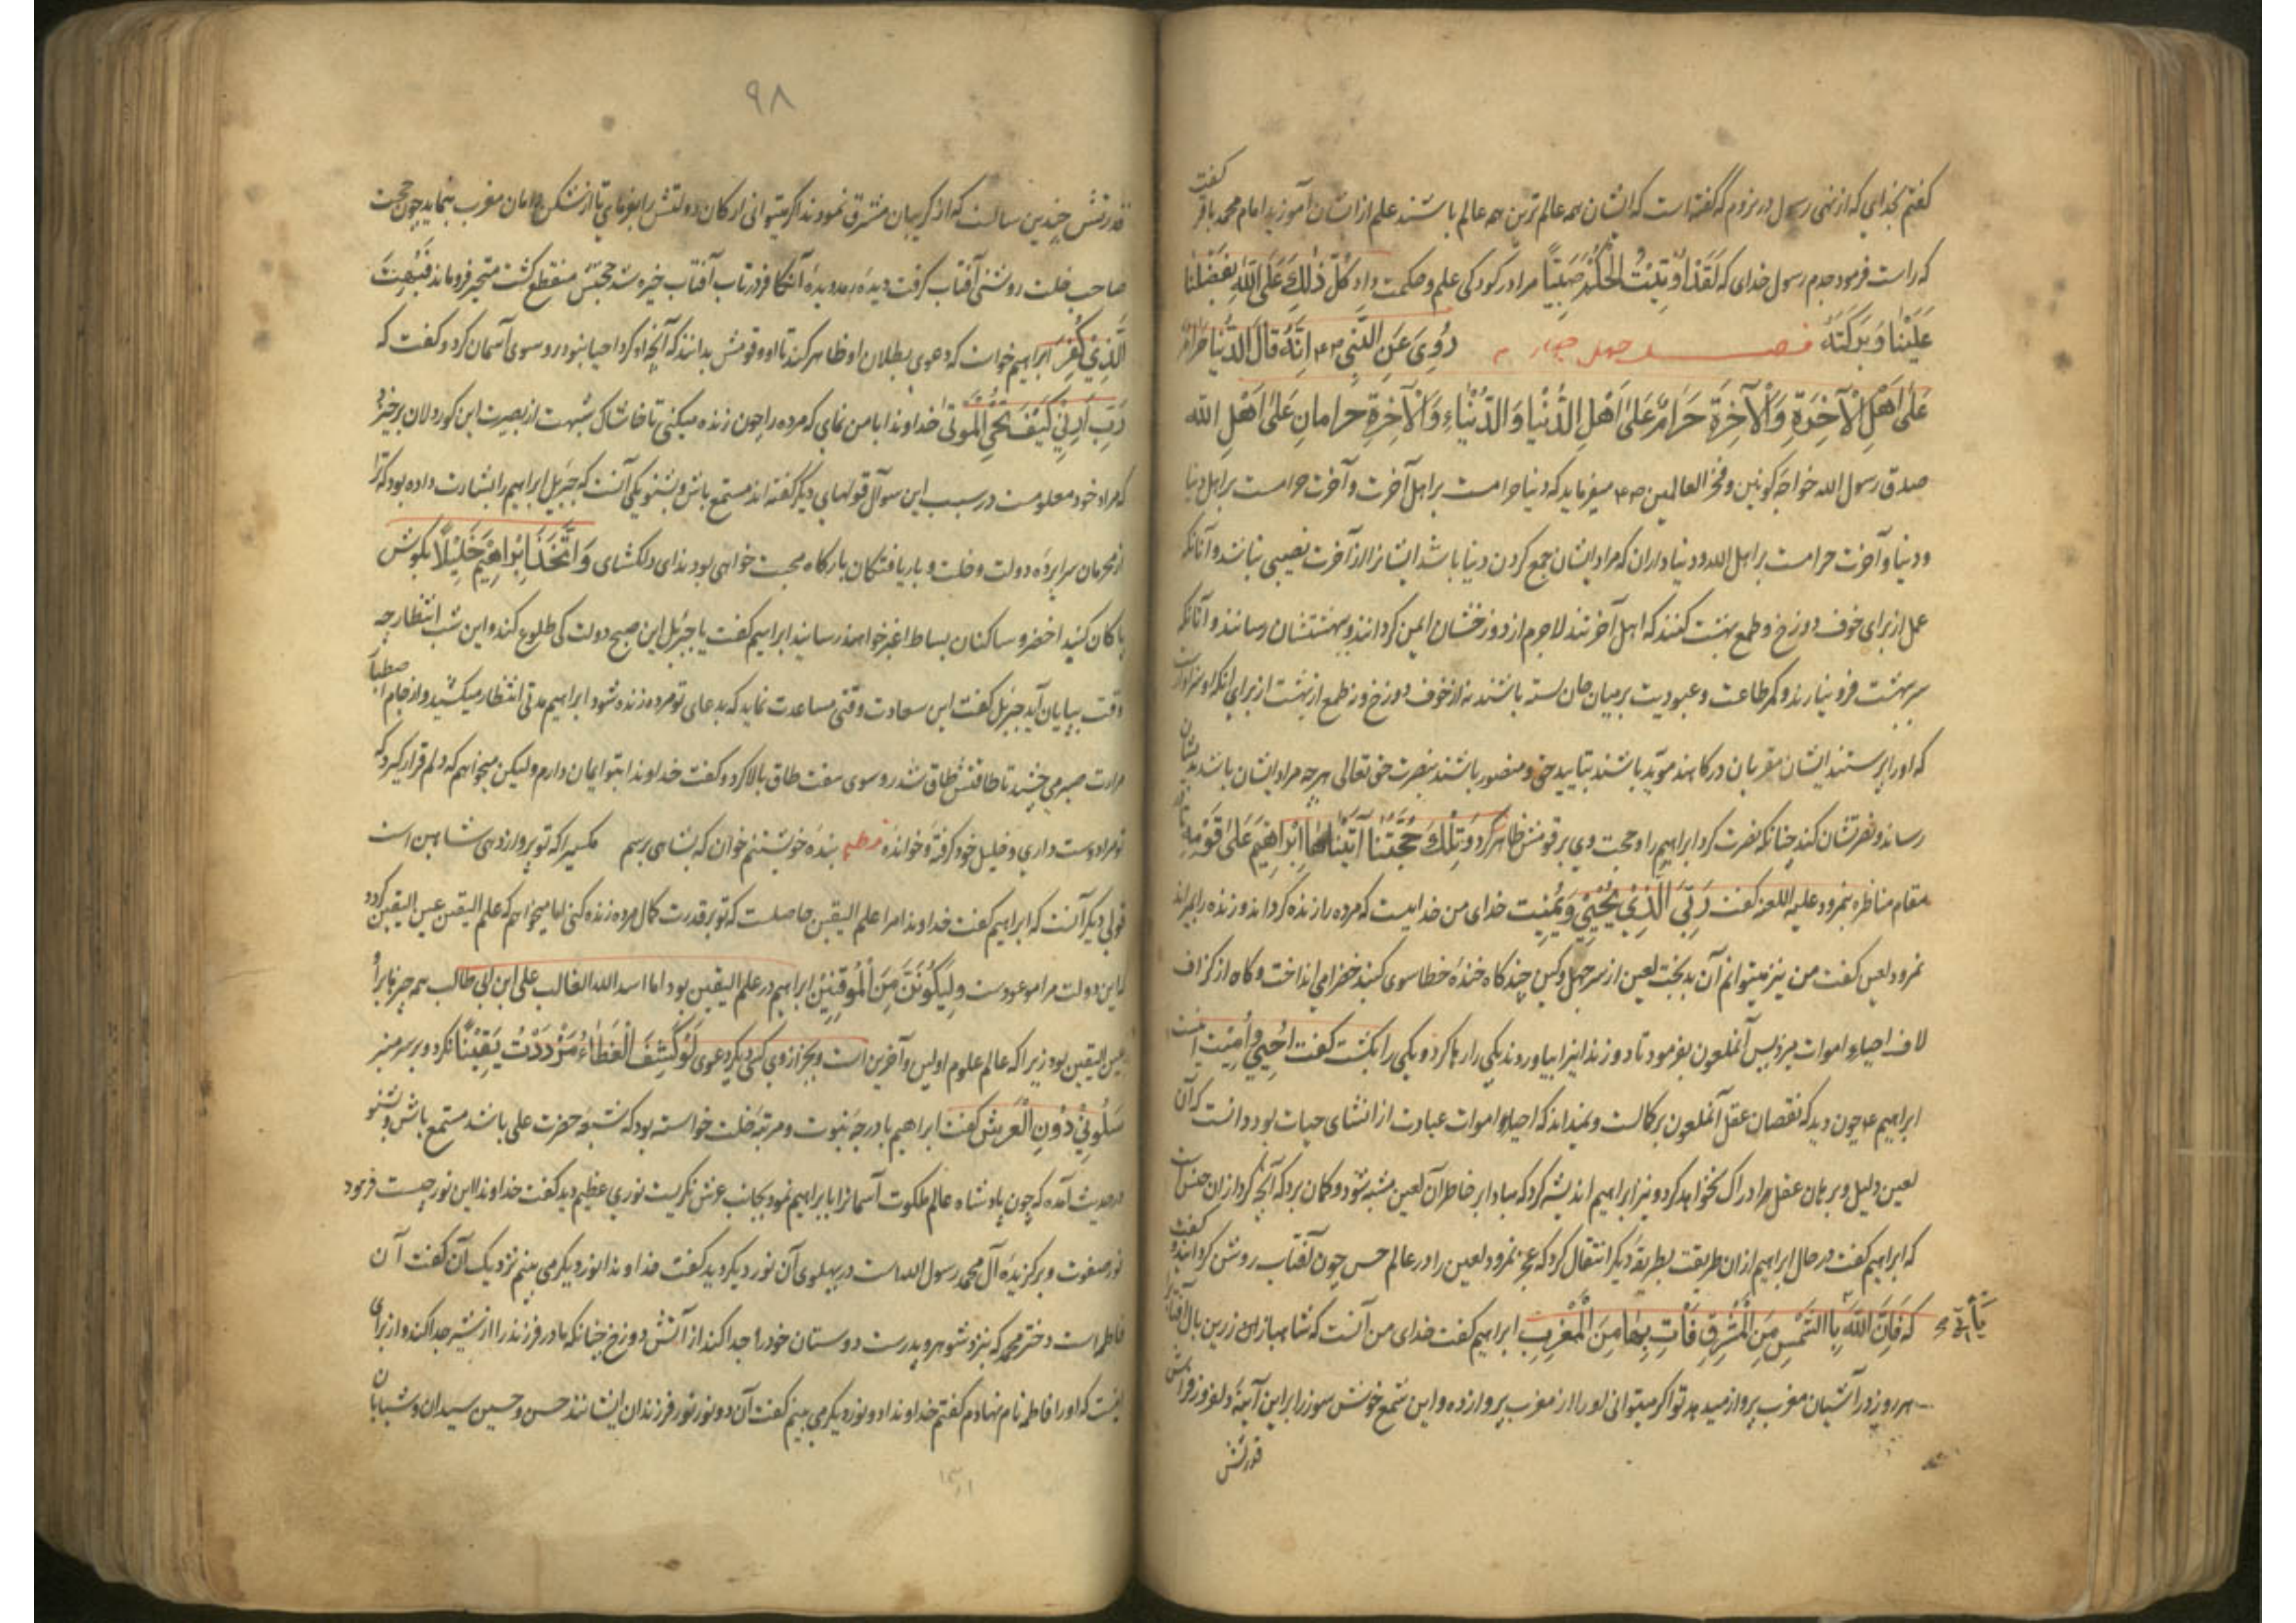 گفتم بخدای که از نهی رسول در نروم که گفته است که ایشان همه عالم ترین همه عالم باشند علم از ایشان آموزید امام محمد باقر گفت
که راست فرمود جدم رسول خدای که لَقَدْ اُوتِیْتُ الْحُکْمَ صَبِیًّا مرا در کودکی علم و حکمت داد کُلّ ذٰلِكَ عَلَی اللّٰهِ بِفَضْلِنا
عَلَیْنا وَبَرَکَتُهُ فصل چهل چهارم رُوِیَ عَنِ النَّبِیِّ اِنَّهُ قَالَ الدُّنْیا حَرامٌ
عَلیٰ اَهْلِ الْآخِرَةِ وَالْآخِرَةُ حَرَامٌ عَلیٰ اَهْلِ الدُّنْیا وَالدُّنْیاءِ وَالْآخِرَةِ حرامانِ عَلیٰ اَهْلِ الله
صدق رسول الله خواجه کونین و فخر العالمین میفرماید که دنیا حرامست بر اهل آخرت و آخرت حرامست بر اهل دنیا
و دنیا و آخرت حرامست بر اهل الله و دنیاداران که مراد ایشان جمع کردن دنیا باشد ایشانرا از آخرت نصیبی نباشد و آنانکه
عمل از برای خوف دوزخ و طمع بهشت کنند که اهل آخرتند لاجرم از دوزخشان ایمن کردانند و ببهشتشان رسانند و آنانکه
سر ببهشت فرو نیارند و کمر طاعت و عبودیت بر میان جان بسته باشند نه از خوف دوزخ و نه طمع از بهشت از برای آنکه او سزاوارست
که او را پرستند ایشان مقربان درکاهند مؤید باشند بتایید حق و منصور باشند بنصرت حق تعالی هرچه مراد ایشان باشد بدیشان
رساند و نصرتشان کند چنانکه نصرت کرد ابراهیم را و حجت وی بر قومش ظاهر کرد وَتِلْكَ حُجَّتُنا آتَیْناهٰا اِبْراهِیْمَ عَلیٰ قَوْمِهِ
مقام مناظره نمرود علیه اللعنه گفت رَبِّیَ الَّذِيْ یُحْیِيْ وَیُمِیْتُ خدای من خداییست که مرده را زنده کرداند و زنده را بمیراند
نمرود لعین گفت من نیز میتوانم آن بدبخت لعین از سر جهل و کین چند کاه خنده خطا سوی کنبد خضرا می انداخت و کاه از کزاف
لاف احیا و اموات میزد پس آنملعون بفرمود تا دو زندانیرا بیاوردند یکی را رها کرد و یکی را بکشت گفت اُحْیِيْ وَاُمِیْتُ
ابراهیم ع چون دید که نقصان عقل آنملعون بر کمالست و نمیداند که احیا و اموات عبارت از انشای حیات بود دانست که آن
لعین دلیل و برهان عقل را ادراک نخواهد کرد و نیز ابراهیم اندیشه کرد که مبادا بر خاطر آن لعین مشبه شود و کمان برد که آنچه کرد از ان جنس است
که ابراهیم گفت در حال ابراهیم از ان طریقت بطریقه دیگر انتقال کرد که عجز نمرود لعین را در عالم حس چون آفتاب روشن کرداند گفت
که فَاِنَّ اللّٰهَ یَأْتِي بِاالشَّمْسِ مِنَ الْمَشْرِقِ فَأْتِ بِهَا مِنَ الْمَغْرِبِ ابراهیم گفت خدای من آنست که شاهباز زرین بال آفتاب را
هر روز در آشیان مغرب پرواز میدهد تو اگر میتوانی او را از مغرب پرواز ده و این شمع خوش سوز را بر این آینه دلفروز
قدرتش
٩٨
قدرتش چندین سالست که از کریبان مشرق نمودند اگر میتوانی ارکان دولتش را بفرمای تا از دامان مغرب بنماید چون حجت
صاحب خلت روشنی آفتاب کرفت دیده رمد دیده آن کافر در تاب آفتاب خیره شد حجتش منقطع گشت متحیر فرو ماند فَبُهِتَ
الَّذِيْ کَفَرَ ابراهیم خواست که دعوی بطلان او ظاهر کند تا او و قومش بدانند که آنچه او کرد احیا نبود رو سوی آسمان کرد و گفت که
رَبِّ اَرِنِيْ کَیْفَ تُحْيِ الْمَوْتیٰ خداوندا بامن نمای که مرده را چون زنده میکنی تا خاشاک شبهت از بصیرت این کوردلان برخیزد
که مراد خود معلومست در سبب این سوآل قولهای دیگر گفته اند مستمع باش و بشنو یکی آنست که جبرئیل ابراهیم را بشارت داده بود که ترا
از محرمان سراپرده دولت و خلت و باریافتکان بارکاه محبت خواهی بود ندای دلکشای وَاتَّخَذَ اِبْراهِیْمَ خَلِیْلًا بکوش
پاکان کنبد اخضر و ساکنان بساط اغبر خواهند رسانید ابراهیم گفت یا جبرئیل این صبح دولت کی طلوع کند و این شب انتظار چه
وقت بپایان آید جبرئیل گفت این سعادت وقتی مساعدت نماید که بدعای تو مرده زنده شود ابراهیم مدتی انتظار میکشید و از جام
مرارت صبر می چشید تا طاقتش طاق شد رو سوی سقف طاق بالا کرد و گفت خداوندا بتو ایمان دارم ولیکن میخواهم که دلم قرار کیرد که
تو مرا دوست داری و خلیل خود کرفته و خوانده نظم بنده خویشتنم خوان که بشاهی برسم مکسیرا که تو پرواز دهی شاهین است
قولی دیگر آنست که ابراهیم گفت خداوندا مرا علم الیقین حاصلست که تو بر قدرت کمال مرده زنده کنی اما میخواهم که علم الیقین عین الیقین کردد
که این دولت مرا موعودست وَلِیَکُوْنَنَّ مِنَ الْمُوْقِنِیْنَ ابراهیم در علم الیقین بود اما اسد الله الغالب علی ابن ابی طالب
عین الیقین بود زیرا که عالم علوم اولین و آخرین است و بجز از وی کسی دیگر دعوی لَوْ کُشِفَ الْغِطٰاءُ مَزْدَدْتُ یَقِیْنًا نکرد و بر سر منبر
سَلُوْنِيْ دُوْنِ الْعَرْشِ گفت ابراهیم با درجه نبوت و مرتبه خلت خواسته بود که شیعه حضرت علی باشد مستمع باش و بشنو
در حدیث آمده که چون پادشاه عالم ملکوت آسمانرا بابراهیم نمود بجانب عرش نکریست نوری عظیم دید گفت خداوندا این نور چیست فرمود
نور صفوت و برکزیده آل محمد رسول الله است در پهلوی آن نور دیگر دید گفت خداوندا نور دیگر می بینم نزدیک آن گفت آن
فاطمه است دختر محمد که بنزد شوهر و پدرست دوستان خود را جدا کند از آتش دوزخ چنانکه مادر فرزند را از شیر جدا کند و از برای
اینست که او را فاطمه نام نهادم گفتم خداوندا دو نور دیگر می بینم گفت آن دو نور نور فرزندان ایشانند حسن و حسین سیدان و شبابان